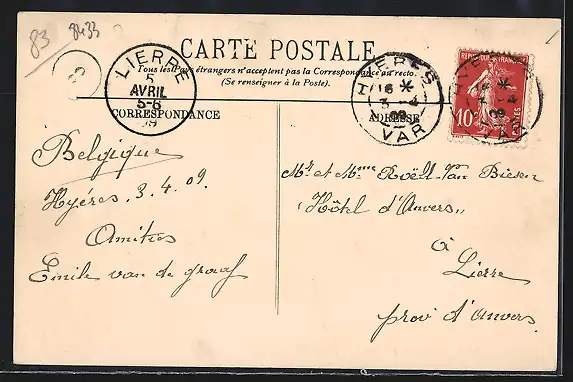 83 8433
CARTE POSTALE
Tous les Pays étrangers n'acceptent pas la Correspondance au recto.
(Se renseigner à la Poste).
LIERRE
5
AVRIL
5-6
09
HYÈRES
16 *
3 -4
09
VAR
10
POSTES
CORRESPONDANCE
ADRESSE
Belgique
Hyères. 3.4.09.
Amitiés
Emile van de graaf
Mr et Mme Roëll-Van Biesen
"Hôtel d'Anvers„
à
Lierre
prov d'Anvers